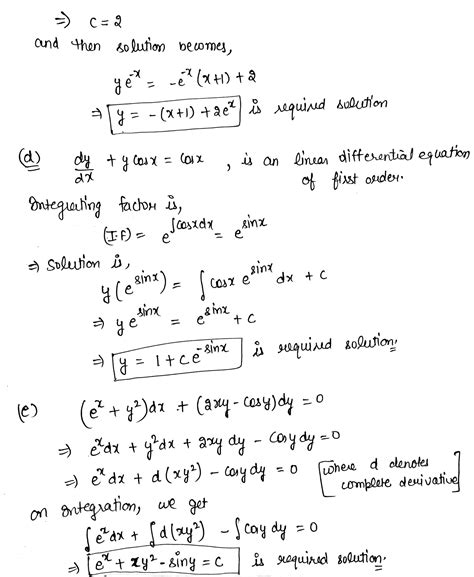 ⇒ C = 2
and then solution becomes,
ye^{-x} = -e^{-x}(x+1) + 2
⇒ y = -(x+1) + 2e^x is required solution
(d) dy/dx + y cosx = cosx , is an linear differential equation
of first order.
Integrating factor is,
(I.F) = e^{∫cosxdx} = e^{sinx}
⇒ Solution is,
y(e^{sinx}) = ∫ cosx e^{sinx} dx + C
⇒ ye^{sinx} = e^{sinx} + C
⇒ y = 1 + ce^{-sinx} is required solution.
(e) (e^x + y^2)dx + (2xy - cosy)dy = 0
⇒ e^x dx + y^2 dx + 2xy dy - cosy dy = 0
⇒ e^x dx + d(xy^2) - cosy dy = 0 [where d denotes
complete derivative]
on integration, we get
∫e^x dx + ∫d(xy^2) - ∫cosy dy = 0
⇒ e^x + xy^2 - siny = C is required solution.